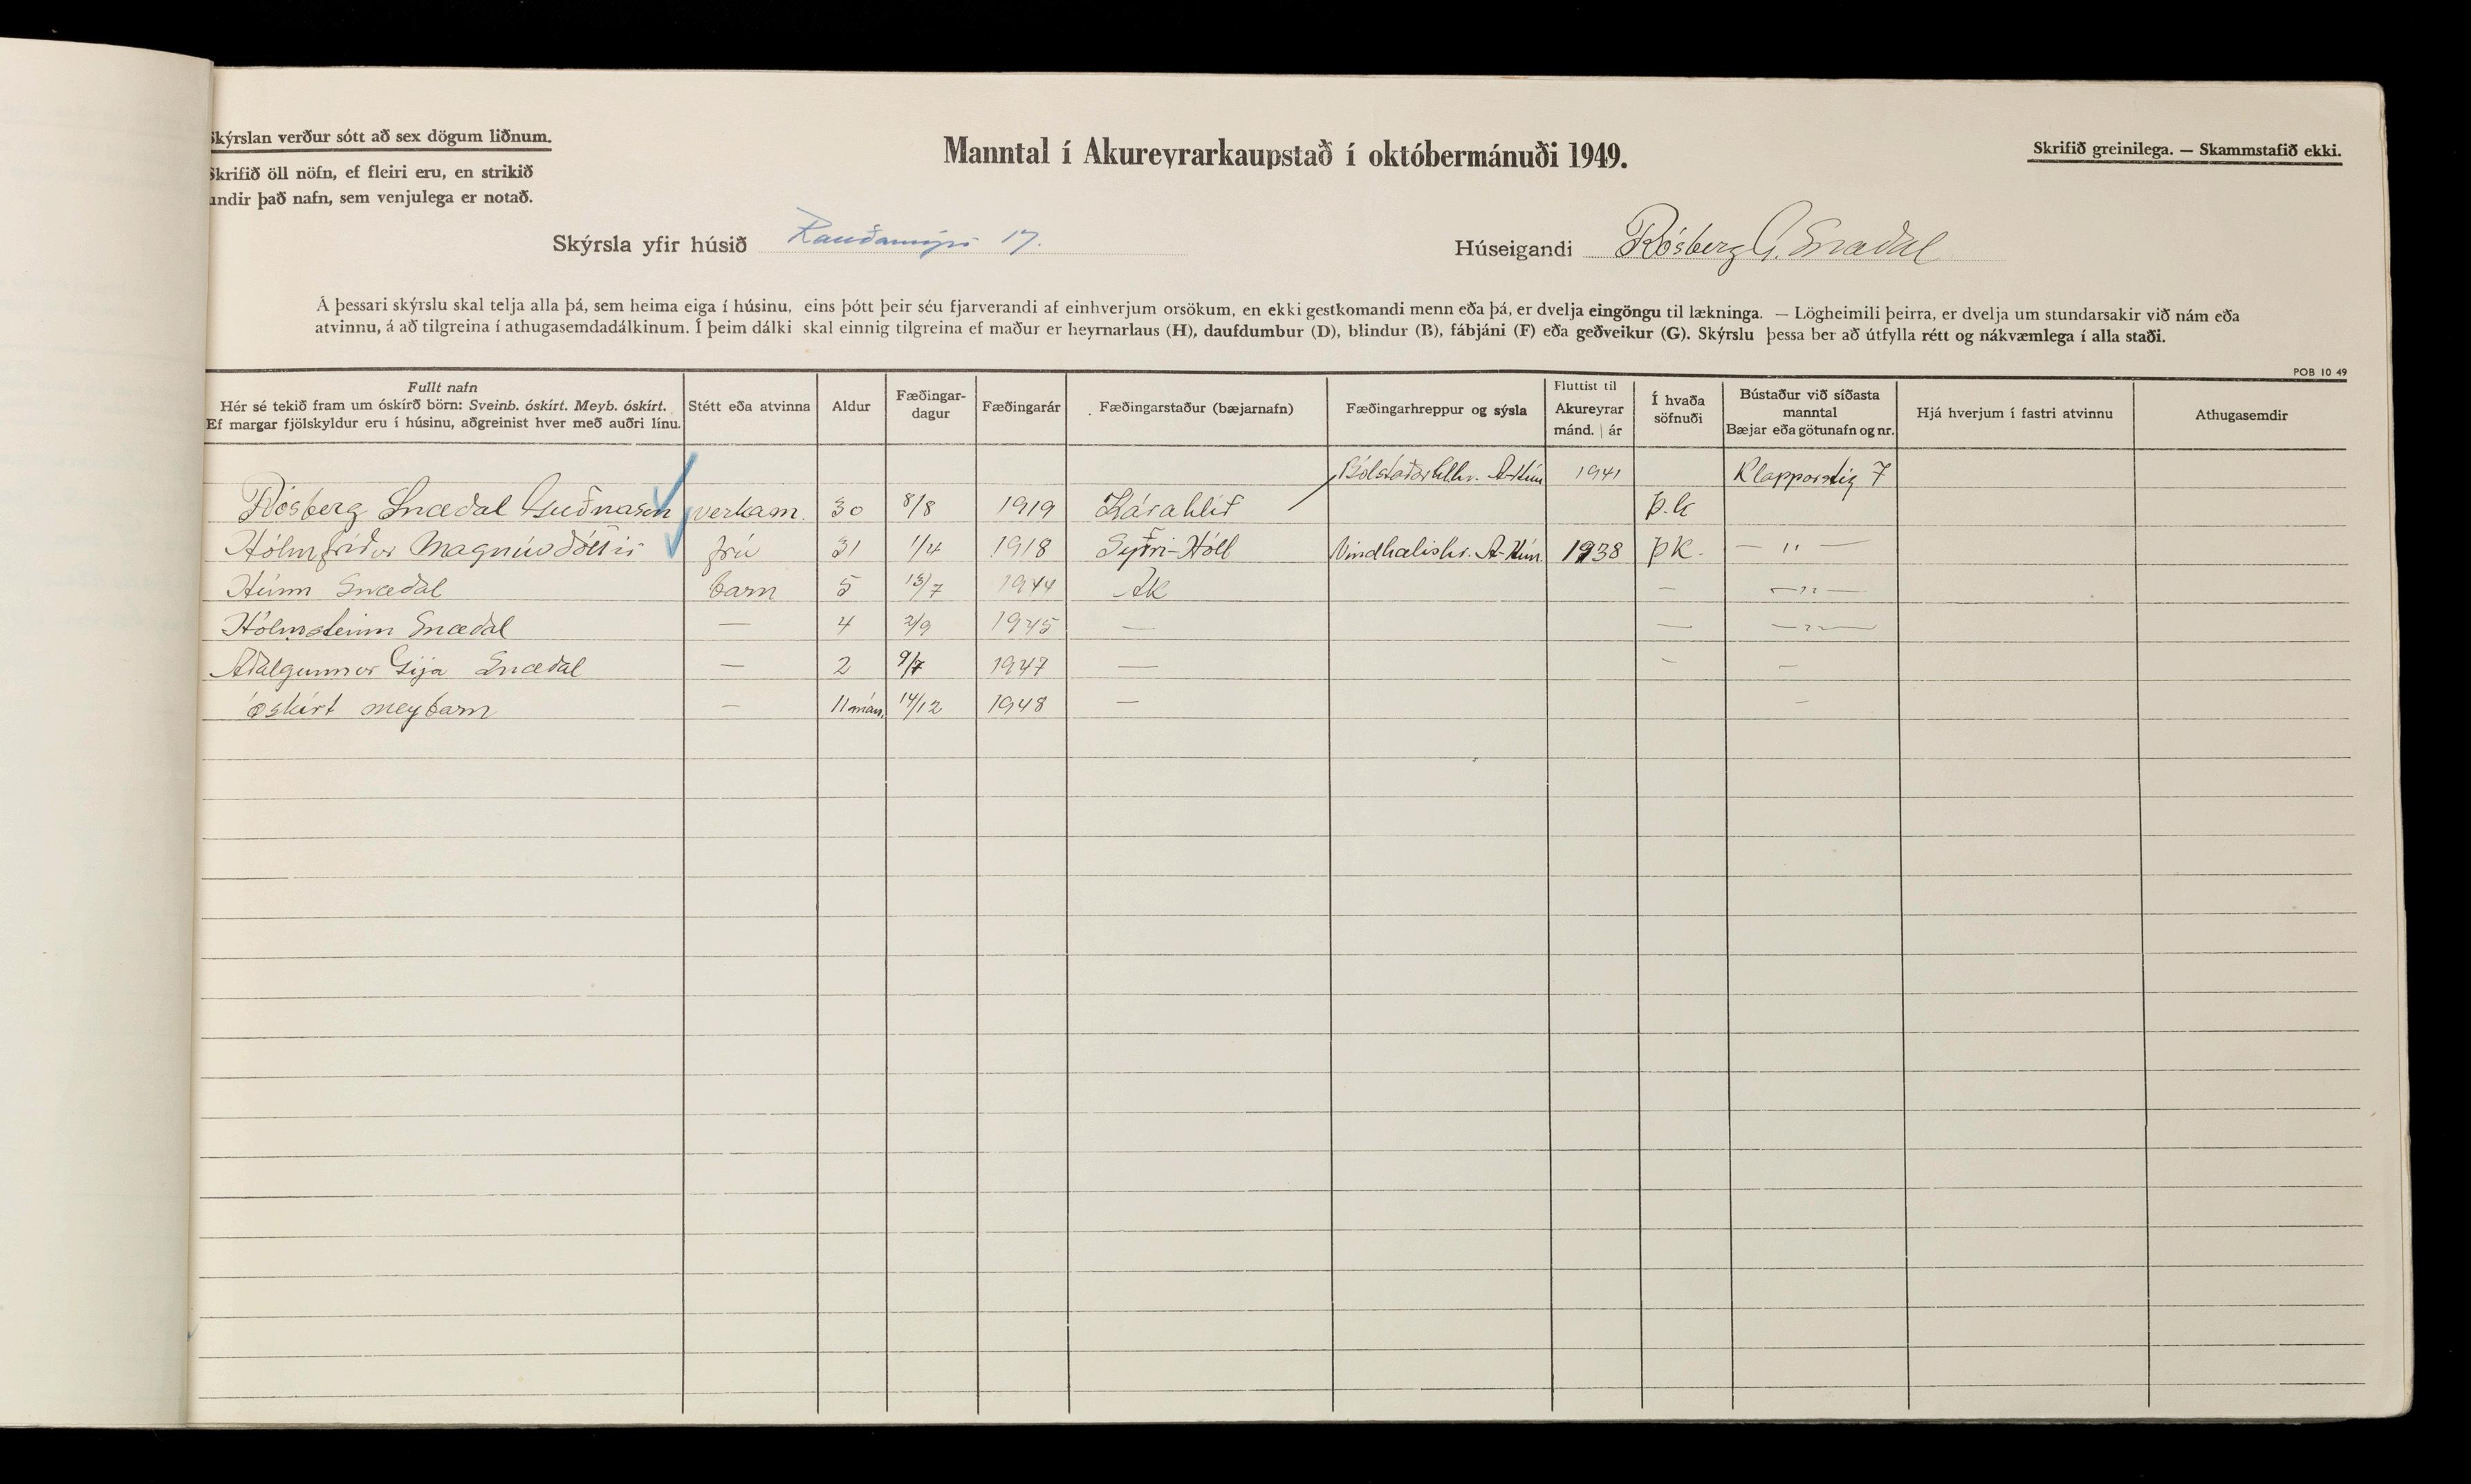 Skýrslan verður sótt að sex dögum liðnum.
Skrifið öll nöfn, ef fleiri eru, en strikið
undir það nafn, sem venjulega er notað.
Manntal í Akureyrarkaupstað í októbermánuði 1949.
Skrifið greinilega. — Skammstafið ekki.
Skýrsla yfir húsið Rauðamýri 17.
Húseigandi Rósberg G. Snædal
Á þessari skýrslu skal telja alla þá, sem heima eiga í húsinu, eins þótt þeir séu fjarverandi af einhverjum orsökum, en ekki gestkomandi menn eða þá, er dvelja eingöngu til lækninga. — Lögheimili þeirra, er dvelja um stundarsakir við nám eða
atvinnu, á að tilgreina í athugasemdadálkinum. Í þeim dálki skal einnig tilgreina ef maður er heyrnarlaus (H), daufdumbur (D), blindur (B), fábjáni (F) eða geðveikur (G). Skýrslu þessa ber að útfylla rétt og nákvæmlega í alla staði.
POB 10 49
Fullt nafn
Hér sé tekið fram um óskírð börn: Sveinb. óskírt. Meyb. óskírt.
Ef margar fjölskyldur eru í húsinu, aðgreinist hver með auðri línu.
Stétt eða atvinna
Aldur
Fæðingar-
dagur
Fæðingarár
Fæðingarstaður (bæjarnafn)
Fæðingarhreppur og sýsla
Fluttist til
Akureyrar
mánd. | ár
Í hvaða
söfnuði
Bústaður við síðasta
manntal
Bæjar eða götunafn og nr.
Hjá hverjum í fastri atvinnu
Athugasemdir
Bólstaðarhlhr. A-Hún 1941 Klapparstíg 7
Rósberg Snædal Guðnason verkam. 30 8/8 1919 Kárahlíð Þ.k
Hólmfríður Magnúsdóttir frú 31 1/4 1918 Syðri-Hóll Vindhælishr. A-Hún. 1938 ÞK. — " —
Húnn Snædal barn 5 13/7 1944 Ak — — " —
Hólmsteinn Snædal — 4 2/9 1945 — — — " —
Aðalgunnur Gija Snædal — 2 9/7 1947 — — —
óskírt meybarn — 11 mán. 14/12 1948 — —